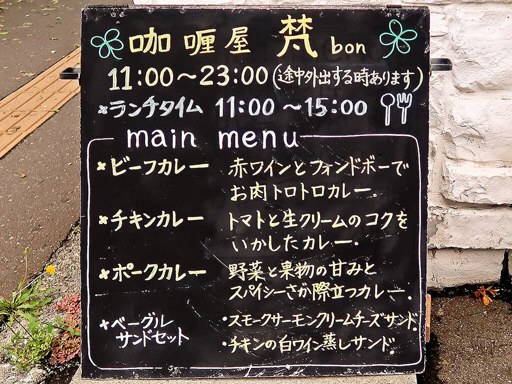 咖喱屋 梵 bon
11:00～23:00(途中外出する時あります)
*ランチタイム 11:00～15:00
main menu
*ビーフカレー 赤ワインとフォンドボーで
お肉トロトロカレー.
*チキンカレー トマトと生クリームのコクを
いかしたカレー.
*ポークカレー 野菜と果物の甘みと
スパイシーさが際立つカレー.
*ベーグル
サンドセット
・スモークサーモンクリームチーズサンド.
・チキンの白ワイン蒸しサンド.